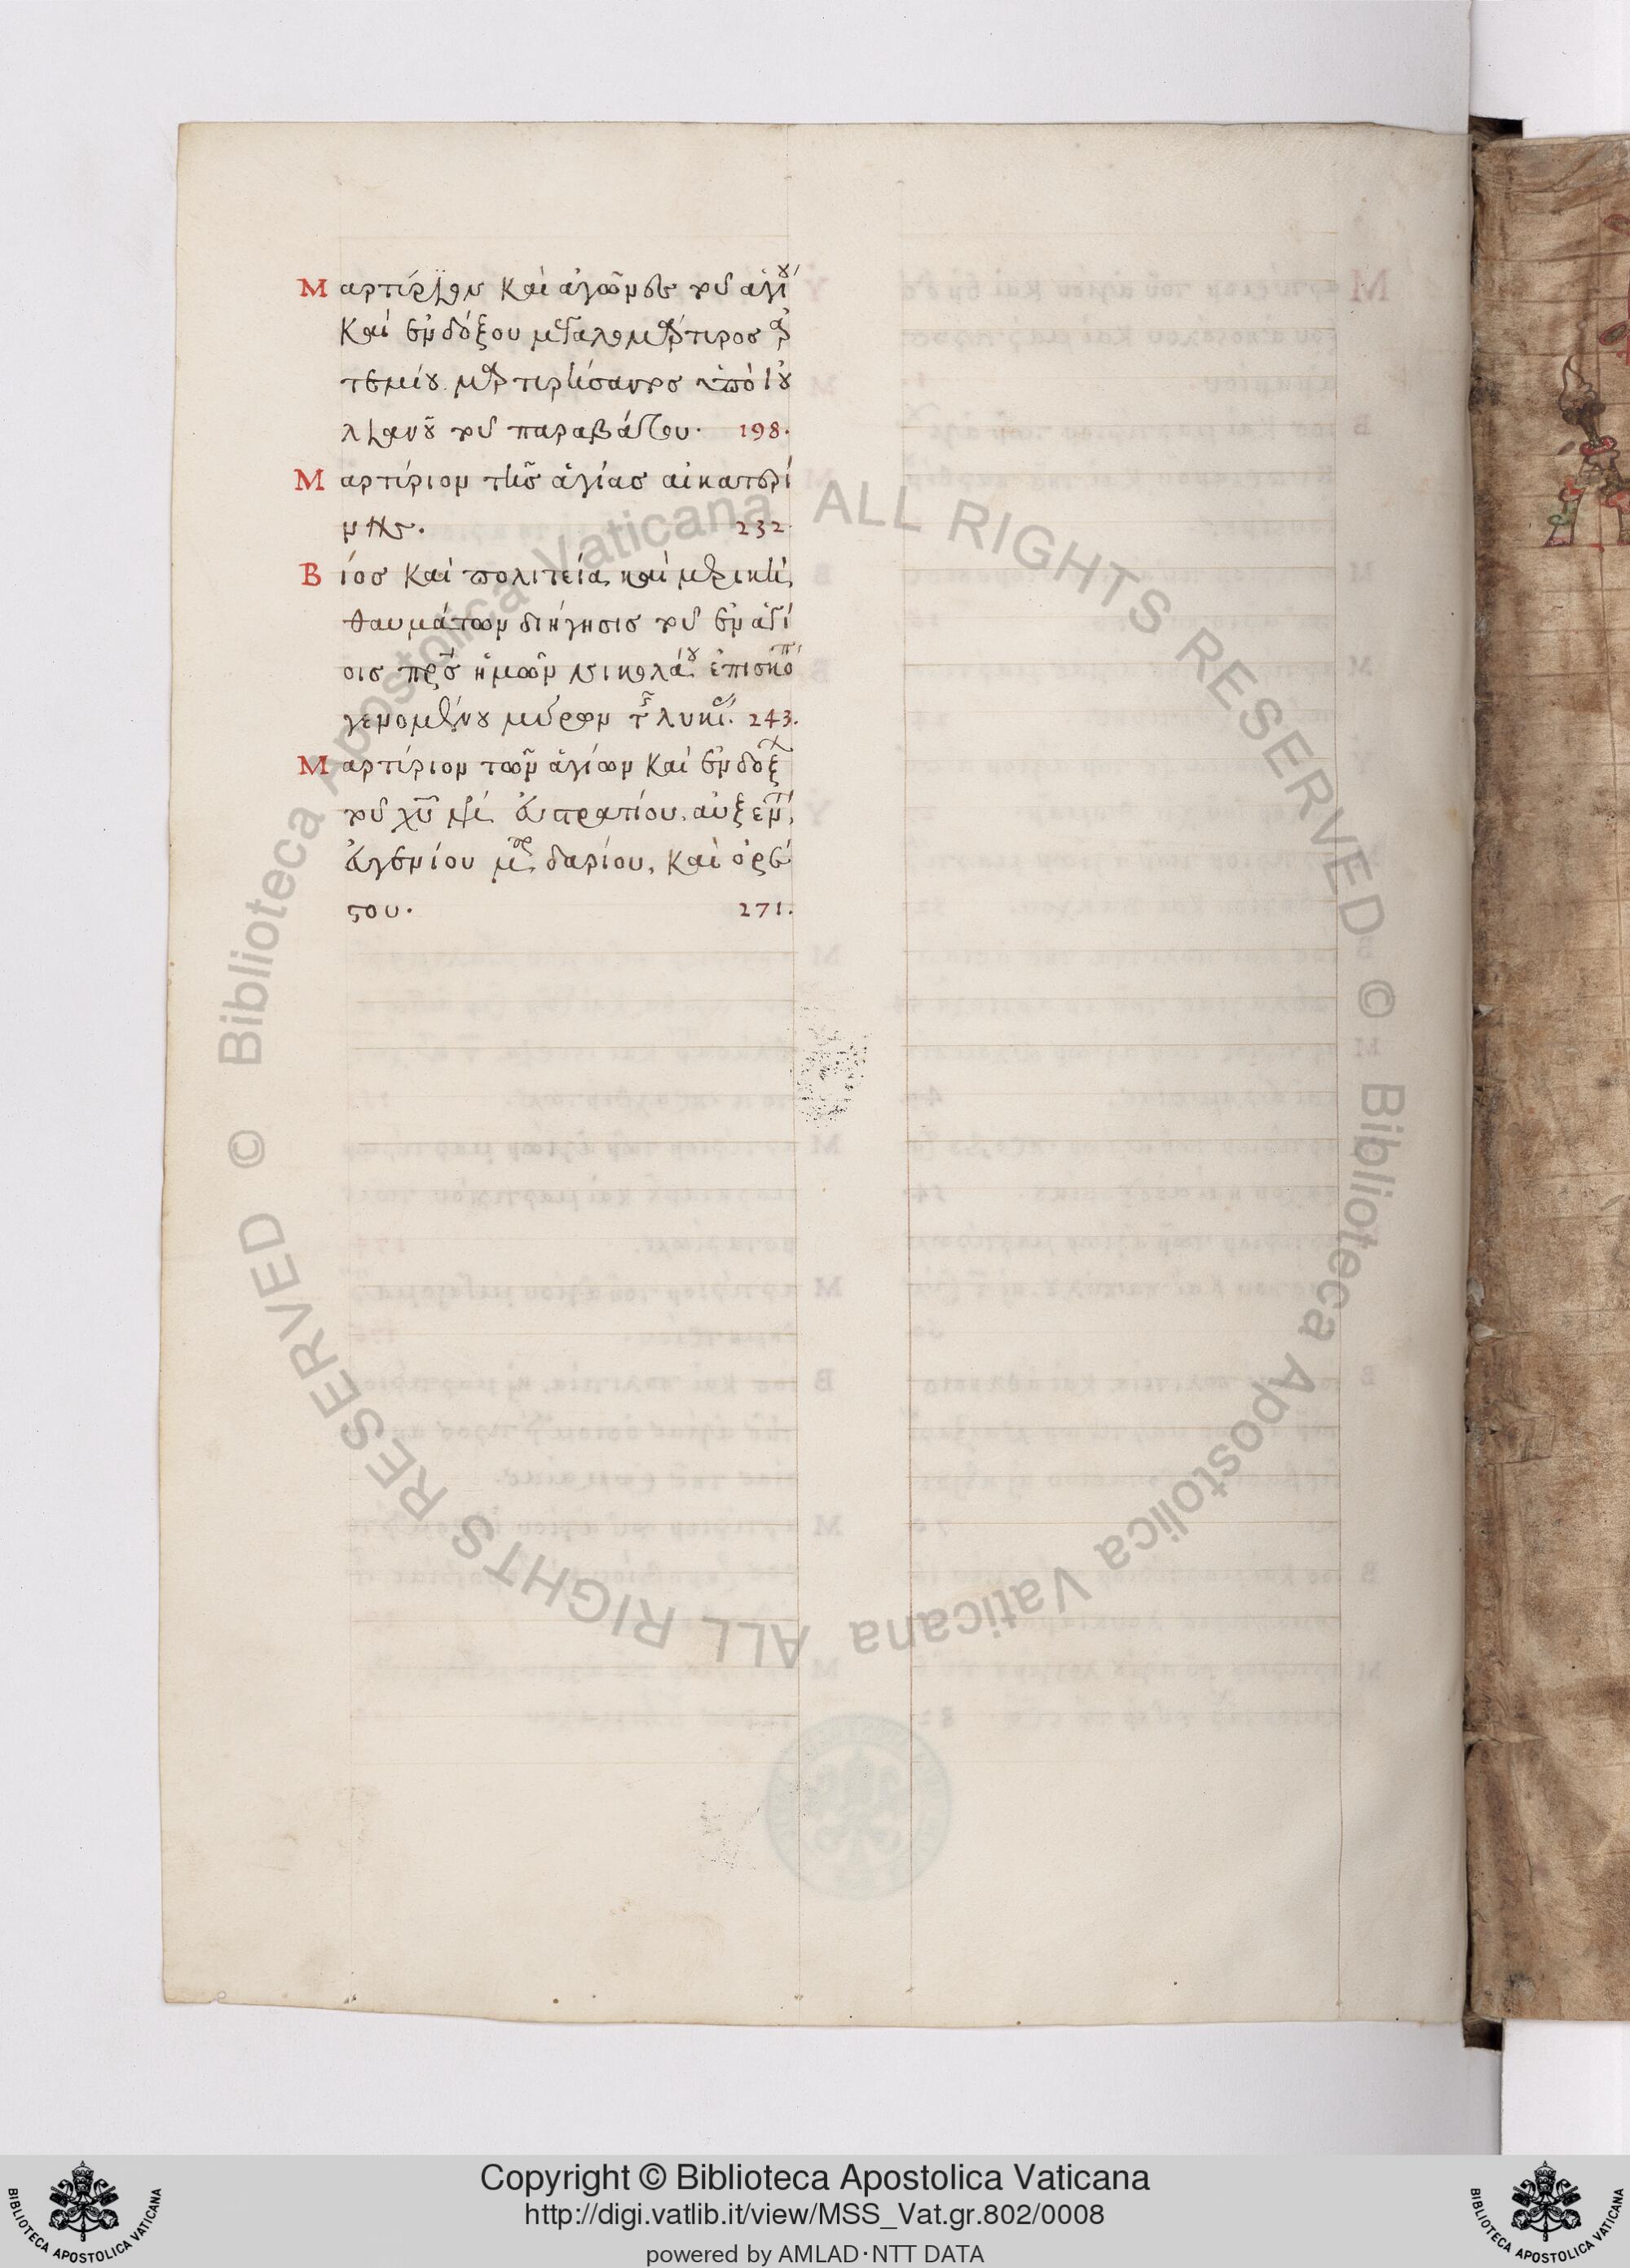 Μαρτίριον και αγώνες του αγίου
Και ενδόξου μεγαλομάρτιρος αρ
τεμίου μαρτιρήσαντος υπό ιου
λιανού του παραβάτου· 198.
Μαρτίριον της αγίας αικατερί
νης. 232.
Βίος και πολιτεία, και μερική,
θαυμάτων διήγησις του εν αγί
οις πρς ημών νικολάου επισκό
γενομένου μύρων της λυκί. 243.
Μαρτίριον των αγίων και ενδοξ
του χυ ευστρατίου, αυξεν,
ευγενίου μαρ, δαρίου, και ορέ
στου. 271.
Biblioteca Apostolica Vaticana ALL RIGHTS RESERVED © Biblioteca Apostolica Vaticana ALL RIGHTS RESERVED ©
Copyright © Biblioteca Apostolica Vaticana
http://digi.vatlib.it/view/MSS_Vat.gr.802/0008
powered by AMLAD·NTT DATA
BIBLIOTECA APOSTOLICA VATICANA
BIBLIOTECA APOSTOLICA VATICANA